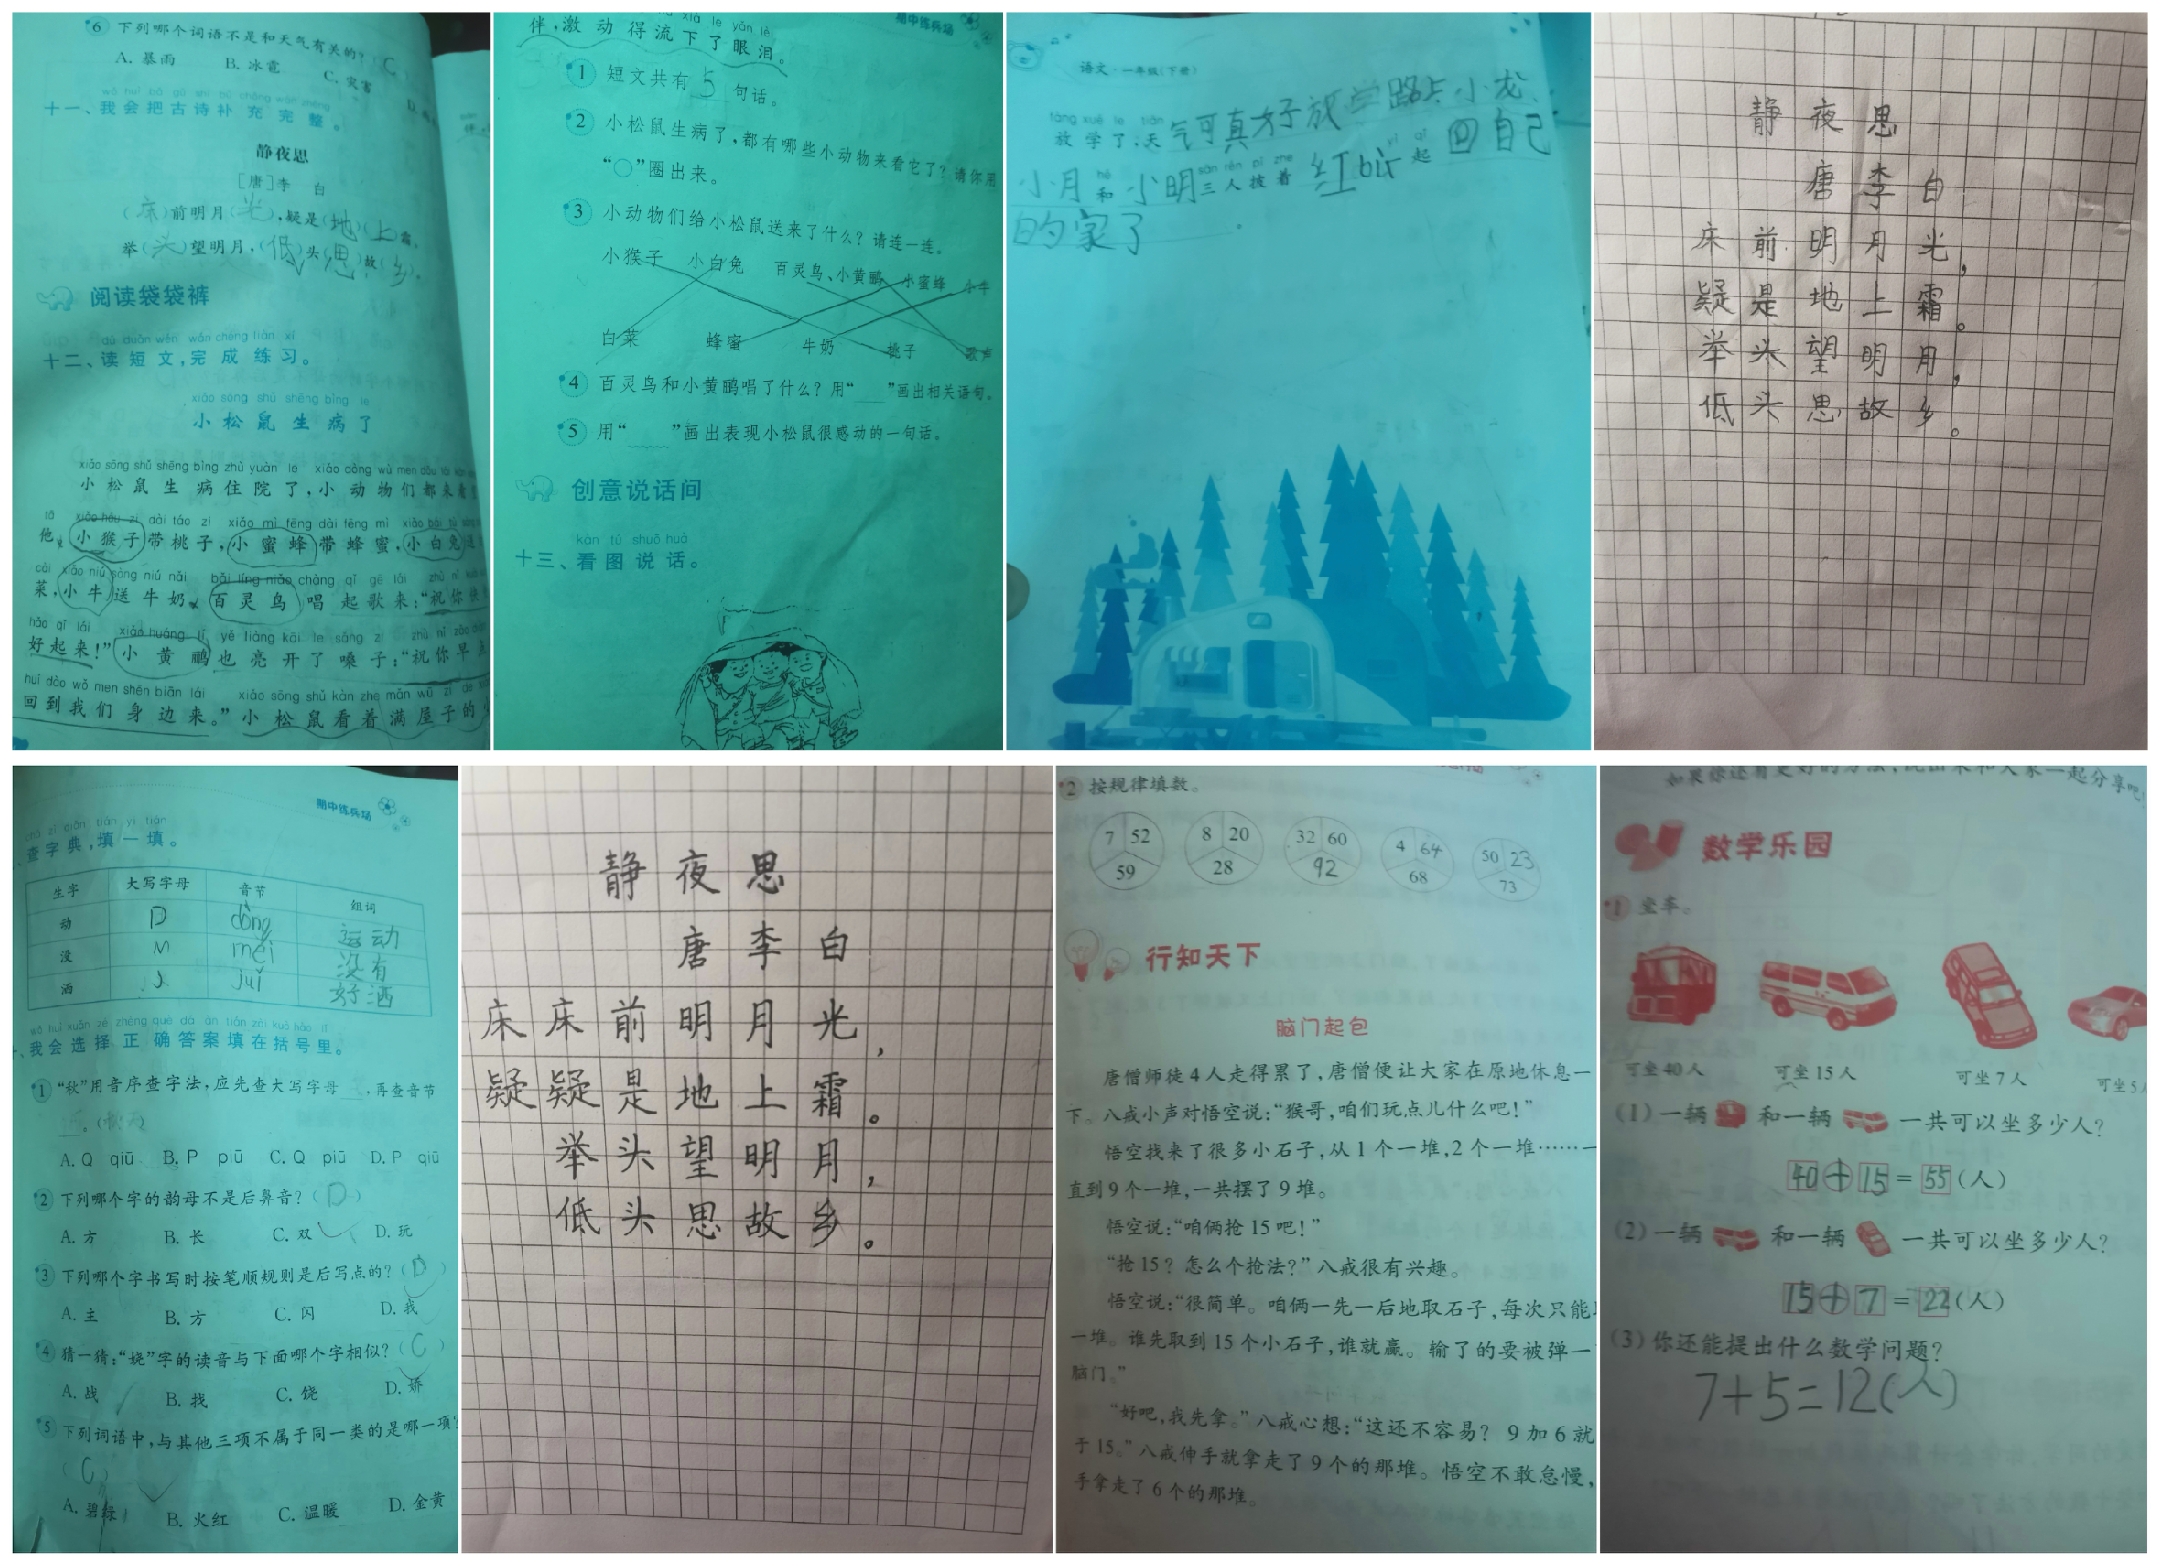 6 下列哪个词语不是和天气有关的?(C
A. 暴雨 B. 冰雹 C. 灾害 D.
wǒ huì bǎ gǔ shī bǔ chōng wán zhěng
十一、我会把古诗补充完整。
静夜思
[唐]李 白
(床)前明月(光),疑是(地)(上)霜,
举(头)望明月,(低)头(思)故(乡)。
阅读袋袋裤
dú duǎn wén wán chéng liàn xí
十二、读短文,完成练习。
xiǎo sōng shǔ shēng bìng le
小松鼠生病了
xiǎo sōng shǔ shēng bìng zhù yuàn le xiǎo dòng wù men dōu lái
小松鼠生病住院了,小动物们都来看
tā xiǎo hóu zi dài táo zi xiǎo mì fēng dài fēng mì xiǎo bái tù
他。小猴子带桃子,小蜜蜂带蜂蜜,小白兔送
cài xiǎo niú sòng niú nǎi bǎi líng niǎo chàng qǐ gē lái zhù nǐ
菜,小牛送牛奶。百灵鸟唱起歌来:“祝你快
hǎo qǐ lái xiǎo huáng lí yě liàng kāi le sǎng zi zhù nǐ zǎo
好起来!”小黄鹂也亮开了嗓子:“祝你早点
huí dào wǒ men shēn biān lái xiǎo sōng shǔ kàn zhe mǎn wū zi de
回到我们身边来。”小松鼠看着满屋子的
期中练兵场
xià le yǎn lèi
伴,激动得流下了眼泪。
1 短文共有 5 句话。
2 小松鼠生病了,都有哪些小动物来看它了?请你用
“○”圈出来。
3 小动物们给小松鼠送来了什么?请连一连。
小猴子 小白兔 百灵鸟、小黄鹂 小蜜蜂 小牛
白菜 蜂蜜 牛奶 桃子 歌声
4 百灵鸟和小黄鹂唱了什么?用“___”画出相关语句。
5 用“ ”画出表现小松鼠很感动的一句话。
创意说话间
kàn tú shuō huà
十三、看图说话。
语文·一年级(下册)
fàng xué le tiān
放学了,天气可真好子放学路上小龙、
hé sān rén pī zhe yì qǐ
小月和小明三人披着红bù一起回自己
的家了。
静夜思
唐 李白
床前明月光,
疑是地上霜。
举头望明月,
低头思故乡。
期中练兵场
chá zì diǎn tián yi tián
查字典,填一填。
生字 大写字母 音节 组词
动 D dòng 运动
没 M méi 没有
酒 J juǐ 好酒
wǒ huì xuǎn zé zhèng què dá àn tián zài kuò hào lǐ
、我会选择正确答案填在括号里。
1 “秋”用音序查字法,应先查大写字母___,再查音节
___。(秋天)
A. Q qiū B. P piū C. Q piū D. P qiū
2 下列哪个字的韵母不是后鼻音?(D)
A. 方 B. 长 C. 双 D. 玩
3 下列哪个字书写时按笔顺规则是后写点的?(D)
A. 主 B. 方 C. 闪 D. 我
4 猜一猜:“娆”字的读音与下面哪个字相似?(C)
A. 战 B. 找 C. 饶 D. 娇
5 下列词语中,与其他三项不属于同一类的是哪一项?
(C)
A. 碧绿 B. 火红 C. 温暖 D. 金黄
静夜思
唐李白
床床前明月光,
疑疑是地上霜。
举头望明月,
低头思故乡。
2 按规律填数。
7 52 8 20 32 60 4 64 50 23
59 28 92 68 73
行知天下
脑门起包
唐僧师徒4人走得累了,唐僧便让大家在原地休息一
下。八戒小声对悟空说:“猴哥,咱们玩点儿什么吧!”
悟空找来了很多小石子,从1个一堆,2个一堆……一
直到9个一堆,一共摆了9堆。
悟空说:“咱俩抢15吧!”
“抢15?怎么个抢法?”八戒很有兴趣。
悟空说:“很简单。咱俩一先一后地取石子,每次只能
一堆。谁先取到15个小石子,谁就赢。输了的要被弹一
脑门。”
“好吧,我先拿。”八戒心想:“这还不容易?9加6就
于15。”八戒伸手就拿走了9个的那堆。悟空不敢怠慢,
手拿走了6个的那堆。
如果你还有更好的方法,说出来和大家一起分享吧!
数学乐园
1 坐车。
可坐40人 可坐15人 可坐7人 可坐5人
(1)一辆 和一辆 一共可以坐多少人?
40+15=55(人)
(2)一辆 和一辆 一共可以坐多少人?
15+7=22(人)
(3)你还能提出什么数学问题?
7+5=12(人)